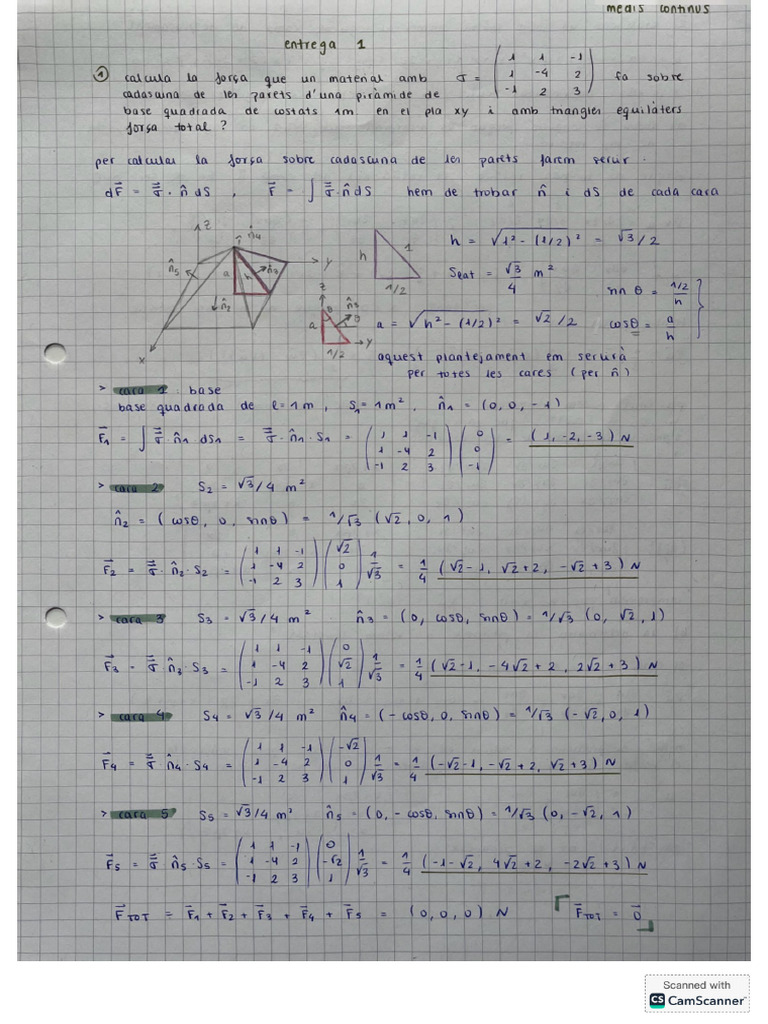 medis continus
entrega 1
① calcula la força que un material amb σ = ( 1 1 -1 / 1 -4 2 / -1 2 3 ) fa sobre
cadascuna de les parets d'una piràmide de
base quadrada de costats 1m en el pla xy i amb triangles equilàters
força total?
per calcular la força sobre cadascuna de les parets farem servir.
dF = σ · n̂ dS , F = ∫ σ · n̂ dS hem de trobar n̂ i dS de cada cara
z n̂4 n̂5 a h n̂3 y n̂2 x
z n̂3 θ θ a y 1/2
h 1 1/2
h = √(1² - (1/2)²) = √3/2
Scat = √3/4 m²
a = √(h² - (1/2)²) = √2/2
sin θ = (1/2)/h
cosθ = a/h
aquest plantejament em servirà
per totes les cares (per n̂)
> cara 1 : base
base quadrada de l = 1m , S1 = 1m² , n̂1 = (0, 0, -1)
F1 = ∫ σ n̂1 dS1 = σ · n̂1 · S1 = ( 1 1 -1 / 1 -4 2 / -1 2 3 ) ( 0 / 0 / -1 ) = (1, -2, -3) N
> cara 2 S2 = √3/4 m²
n̂2 = (cosθ, 0, sinθ) = 1/√3 (√2, 0, 1)
F2 = σ · n̂2 · S2 = ( 1 1 -1 / 1 -4 2 / -1 2 3 ) ( √2 / 0 / 1 ) 1/√3 = 1/4 (√2-1, √2+2, -√2+3) N
> cara 3 S3 = √3/4 m² n̂3 = (0, cosθ, sinθ) = 1/√3 (0, √2, 1)
F3 = σ · n̂3 · S3 = ( 1 1 -1 / 1 -4 2 / -1 2 3 ) ( 0 / √2 / 1 ) 1/√3 = 1/4 (√2-1, -4√2+2, 2√2+3) N
> cara 4 S4 = √3/4 m² n̂4 = (-cosθ, 0, sinθ) = 1/√3 (-√2, 0, 1)
F4 = σ · n̂4 · S4 = ( 1 1 -1 / 1 -4 2 / -1 2 3 ) ( -√2 / 0 / 1 ) 1/√3 = 1/4 (-√2-1, -√2+2, √2+3) N
> cara 5 S5 = √3/4 m² n̂5 = (0, -cosθ, sinθ) = 1/√3 (0, -√2, 1)
F5 = σ · n̂5 · S5 = ( 1 1 -1 / 1 -4 2 / -1 2 3 ) ( 0 / -√2 / 1 ) 1/√3 = 1/4 (-1-√2, 4√2+2, -2√2+3) N
FTOT = F1 + F2 + F3 + F4 + F5 = (0, 0, 0) N FTOT = 0
Scanned with
CS CamScanner